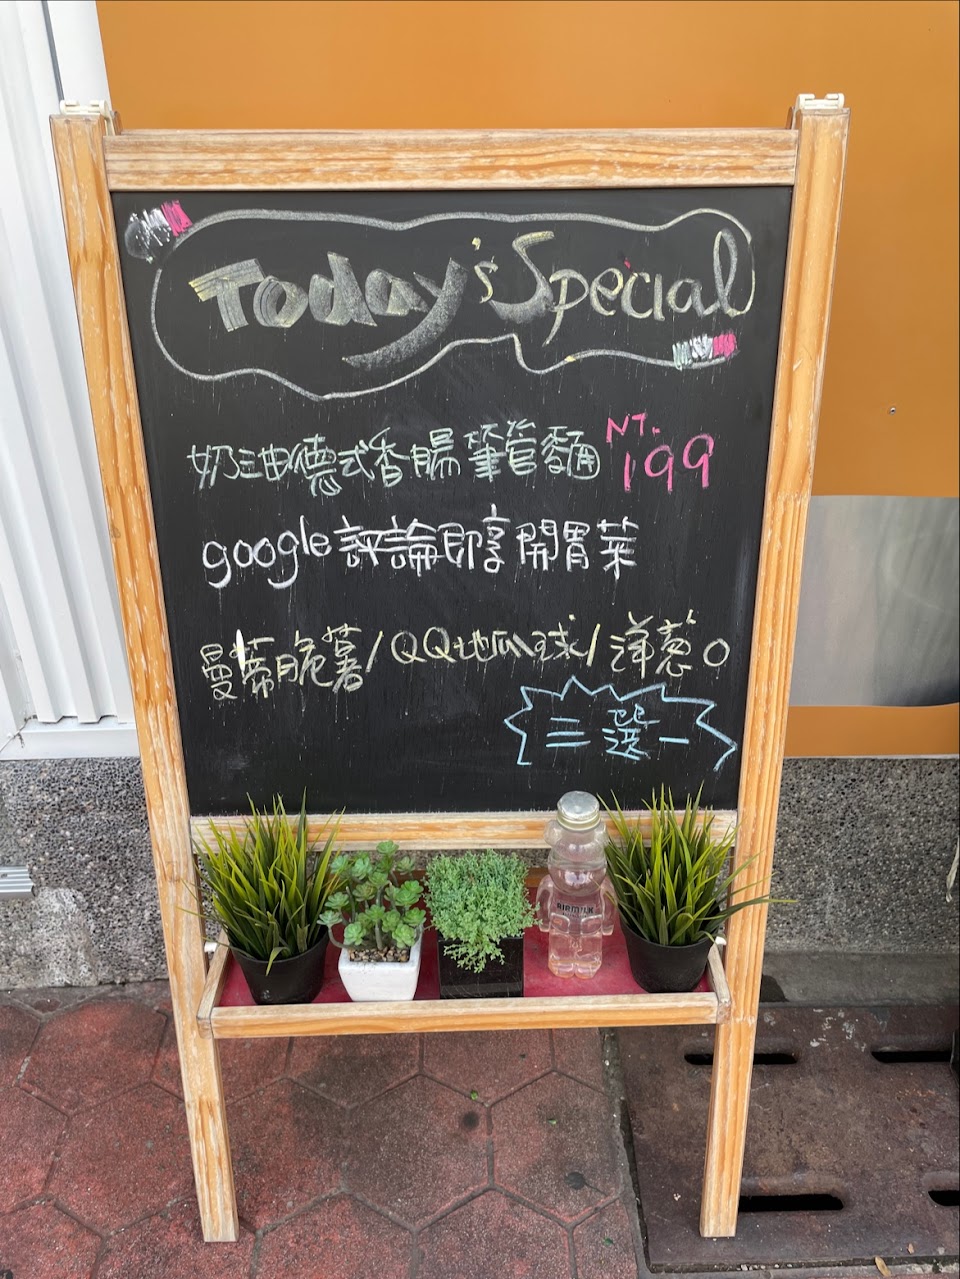 Today's Special
奶油德式香腸筆管麵 NT. 199
google 評論即享開胃菜
曼蒂脆薯/QQ地瓜球/洋蔥O
三選一